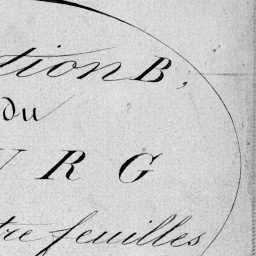 tion B,
du
URG
tre feuilles